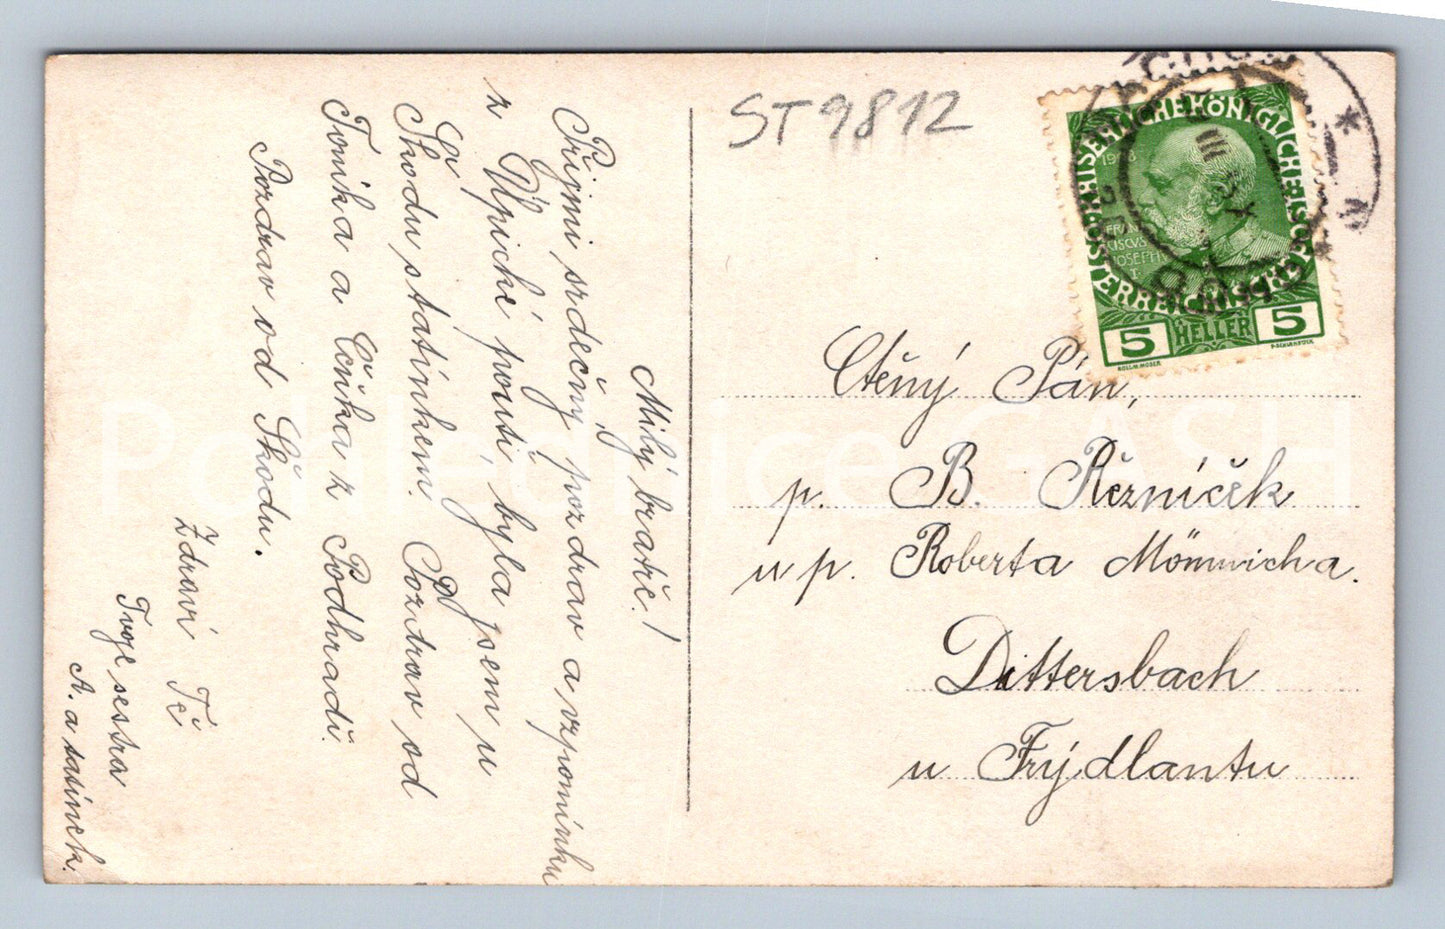 Milý bratře!
Přijmi srdečný pozdrav a vzpomínku
z Úpické pouti, byla jsem u
Škodu statnkem. Pozdrav od
Tonika a Čeňka z Podhradí.
Pozdrav od Škodu.
Zdraví Tě
Tvoje sestra
A. a tatínek.
ST9812
KAISERLICHE KÖNIGLICHE
ÖSTERREICHISCHE
1908
FRAN
CISCUS
JOSEPH
I.
5 HELLER 5
Ctěný Pán,
p. B. Řezníček
u p. Roberta Mömwicha.
Dittersbach
u Frýdlantu
Pohlednice GASH